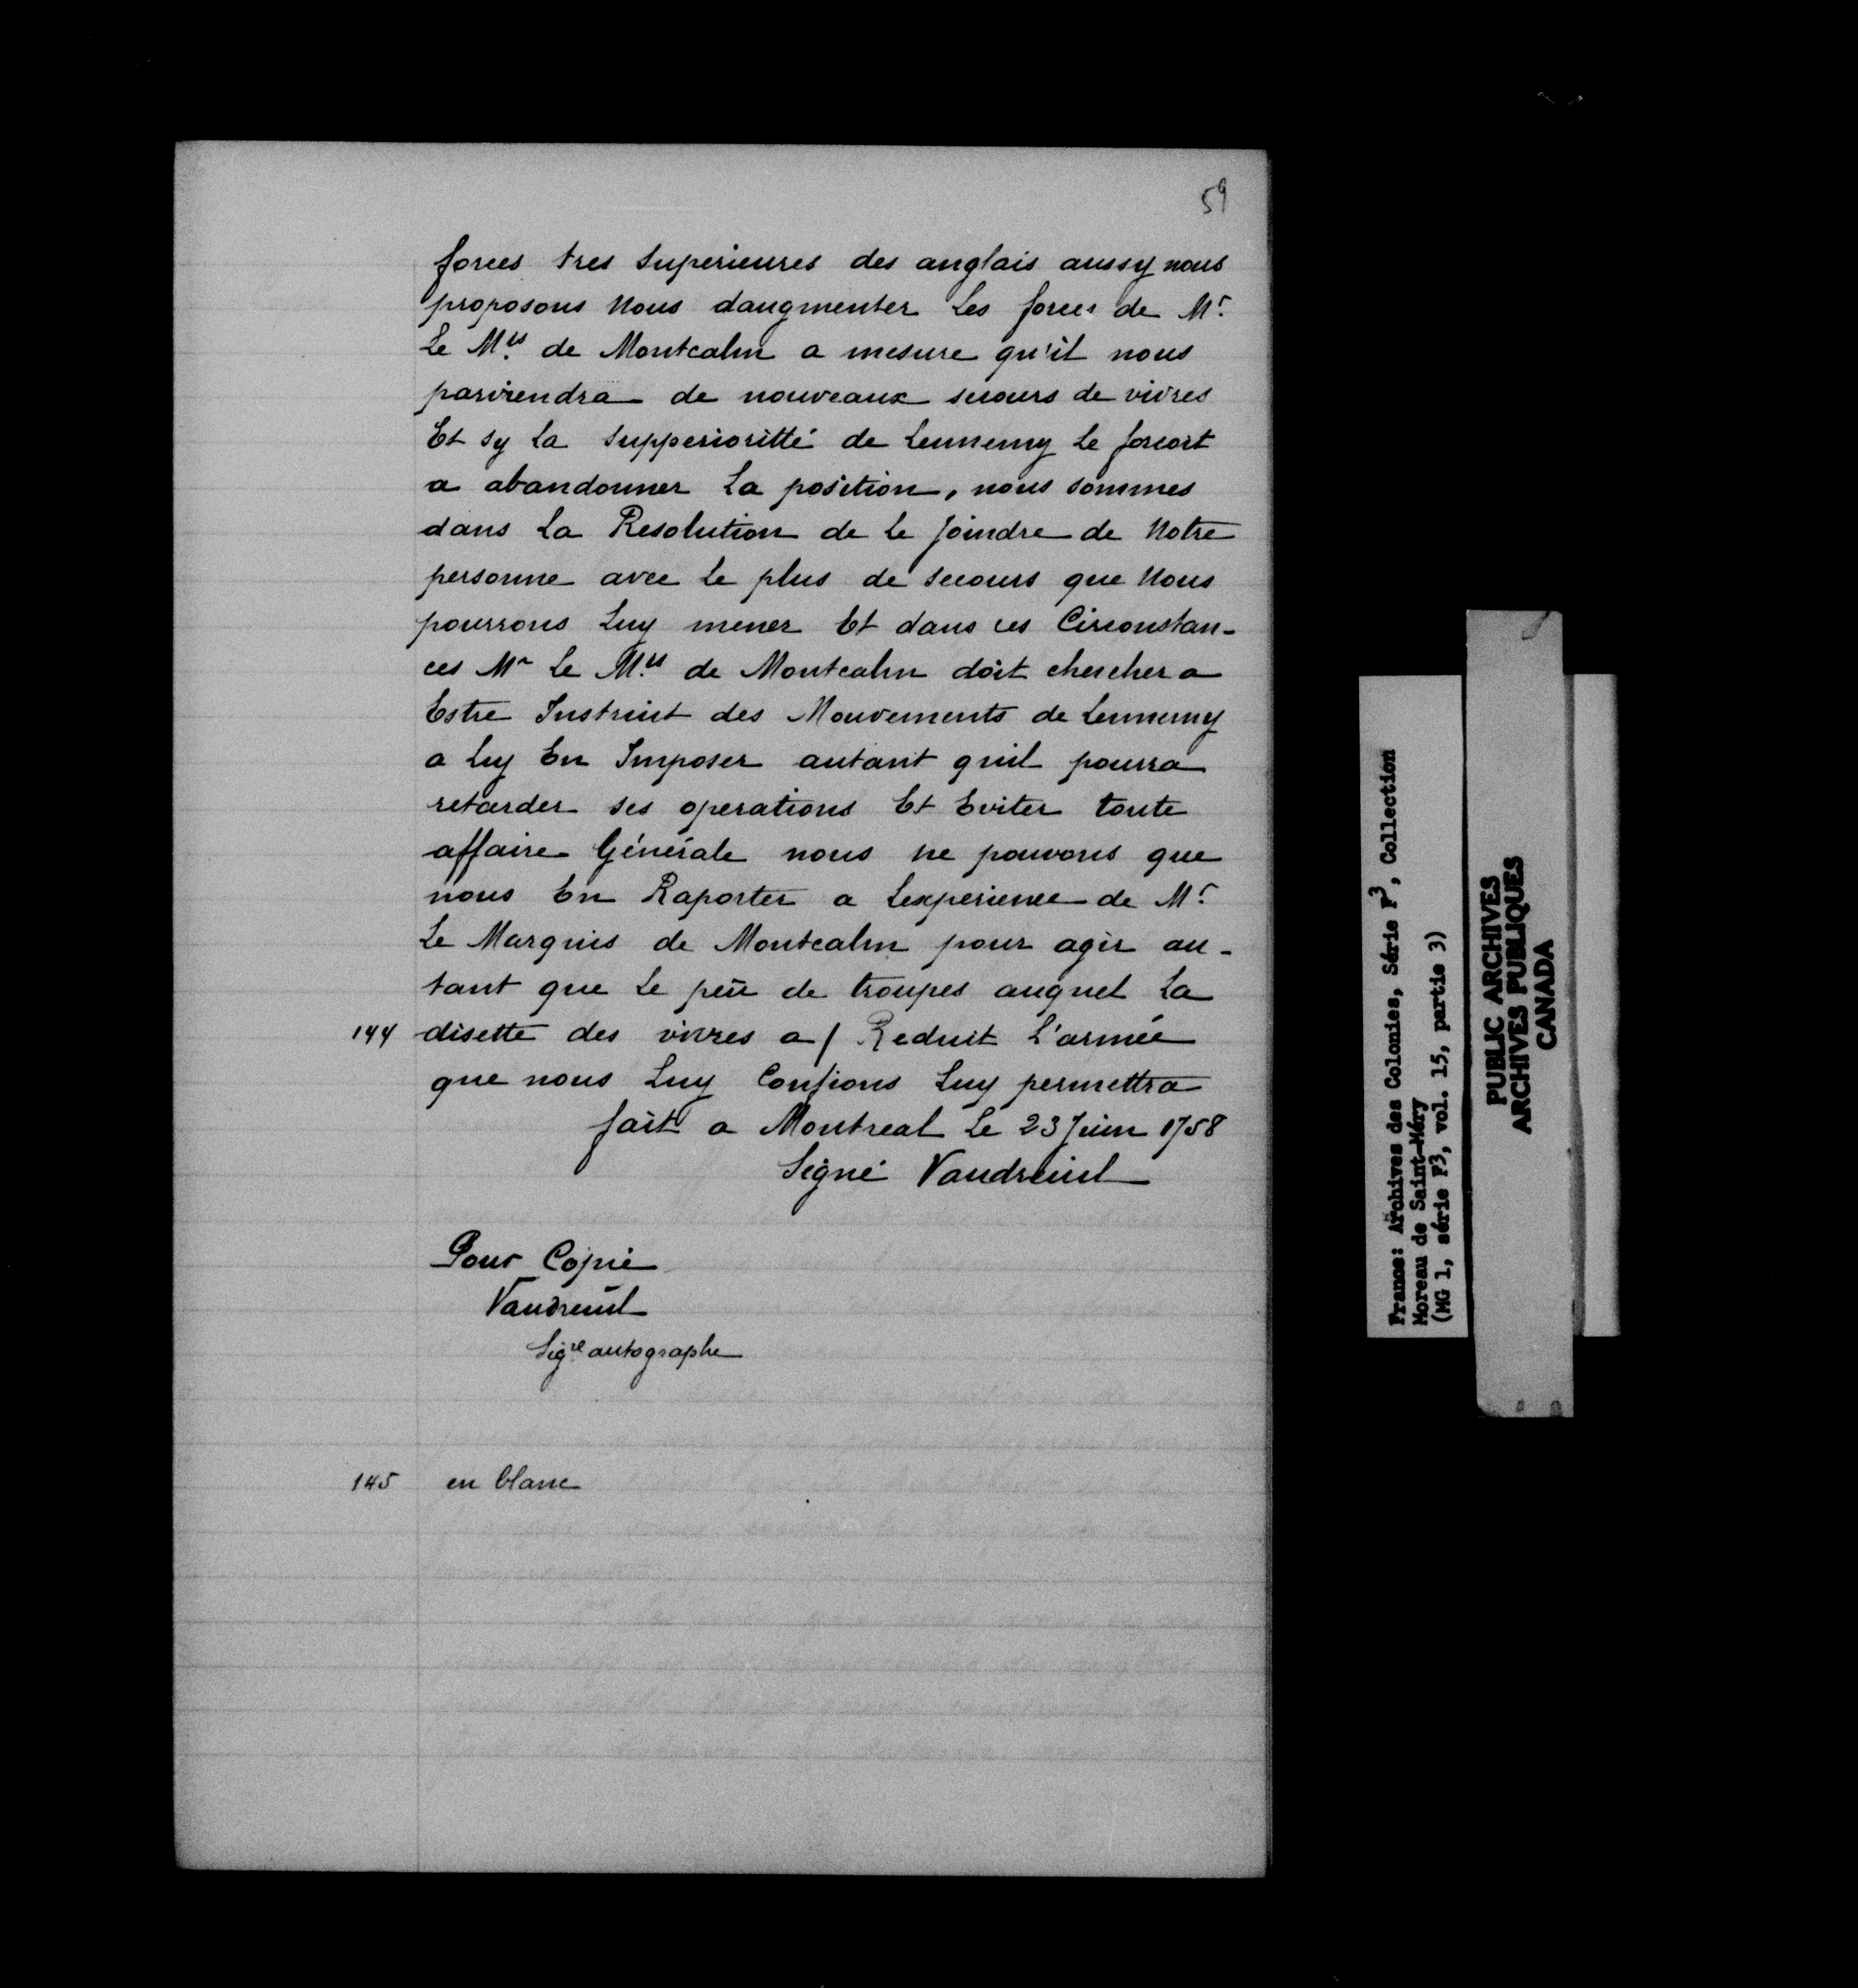 59
forces tres Superieures des anglais aussy nous
proposons Nous daugmenter Les forces de Mr.
Le Mis. de Montcalm a mesure qu'il nous
parviendra de nouveaux secours de vivres
Et sy La Supperioritté de Lennemy Le forcoit
a abandonner La position, nous sommes
dans La Resolution de Le Joindre de Notre
personne avec Le plus de Secours que Nous
pourrons Luy mener Et dans ces Circonstan-
ces Mr Le Mis. de Montcalm doit chercher a
Estre Instruit des Mouvements de Lennemy
a Luy En Imposer autant quil pourra
retarder ses operations Et Eviter toute
affaire Générale nous ne pouvons que
nous En Raporter a Lexperience de Mr.
Le Marquis de Montcalm pour agir au-
tant que Le peu de troupes auquel La
144 disette des vivres a / Reduit L'armée
que nous Luy Confions Luy permettra
fait a Montreal Le 23 Juin 1758
Signé Vaudreuil
Pour Copie
Vaudreuil
Sigre autographe
145 en blanc
France: Archives des Colonies, Série F3, Collection
Moreau de Saint-Méry
(MG 1, série F3, vol. 15, partie 3)
PUBLIC ARCHIVES
ARCHIVES PUBLIQUES
CANADA